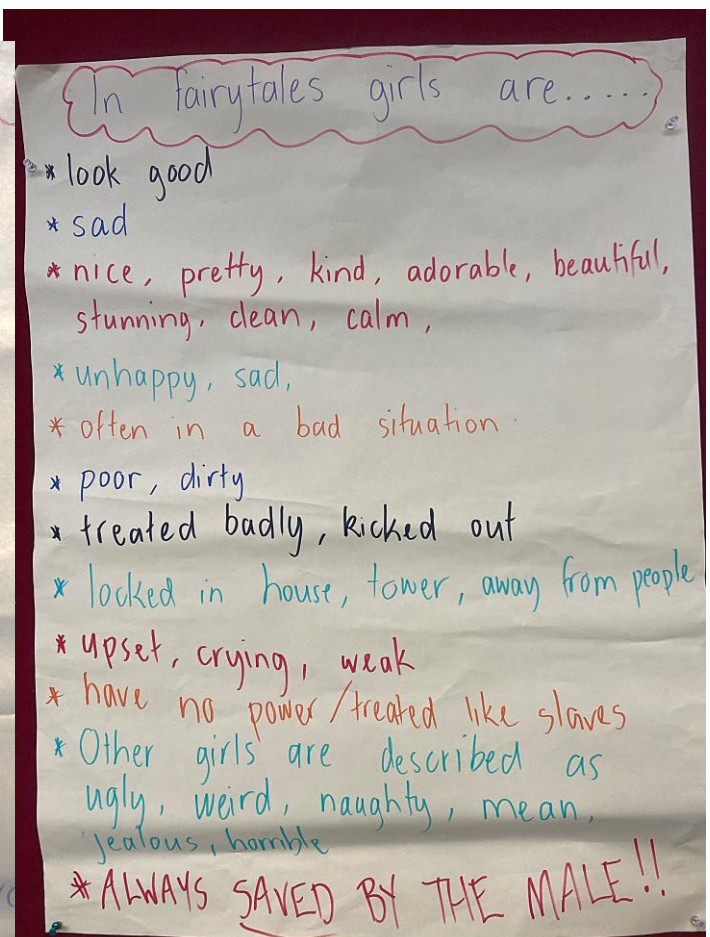 In fairytales girls are.....
* look good
* sad
* nice, pretty, kind, adorable, beautiful,
stunning, clean, calm,
* unhappy, sad,
* often in a bad situation
* poor, dirty
* treated badly, kicked out
* locked in house, tower, away from people
* upset, crying, weak
* have no power/treated like slaves
* Other girls are described as
ugly, weird, naughty, mean,
jealous, horrible
* ALWAYS SAVED BY THE MALE!!